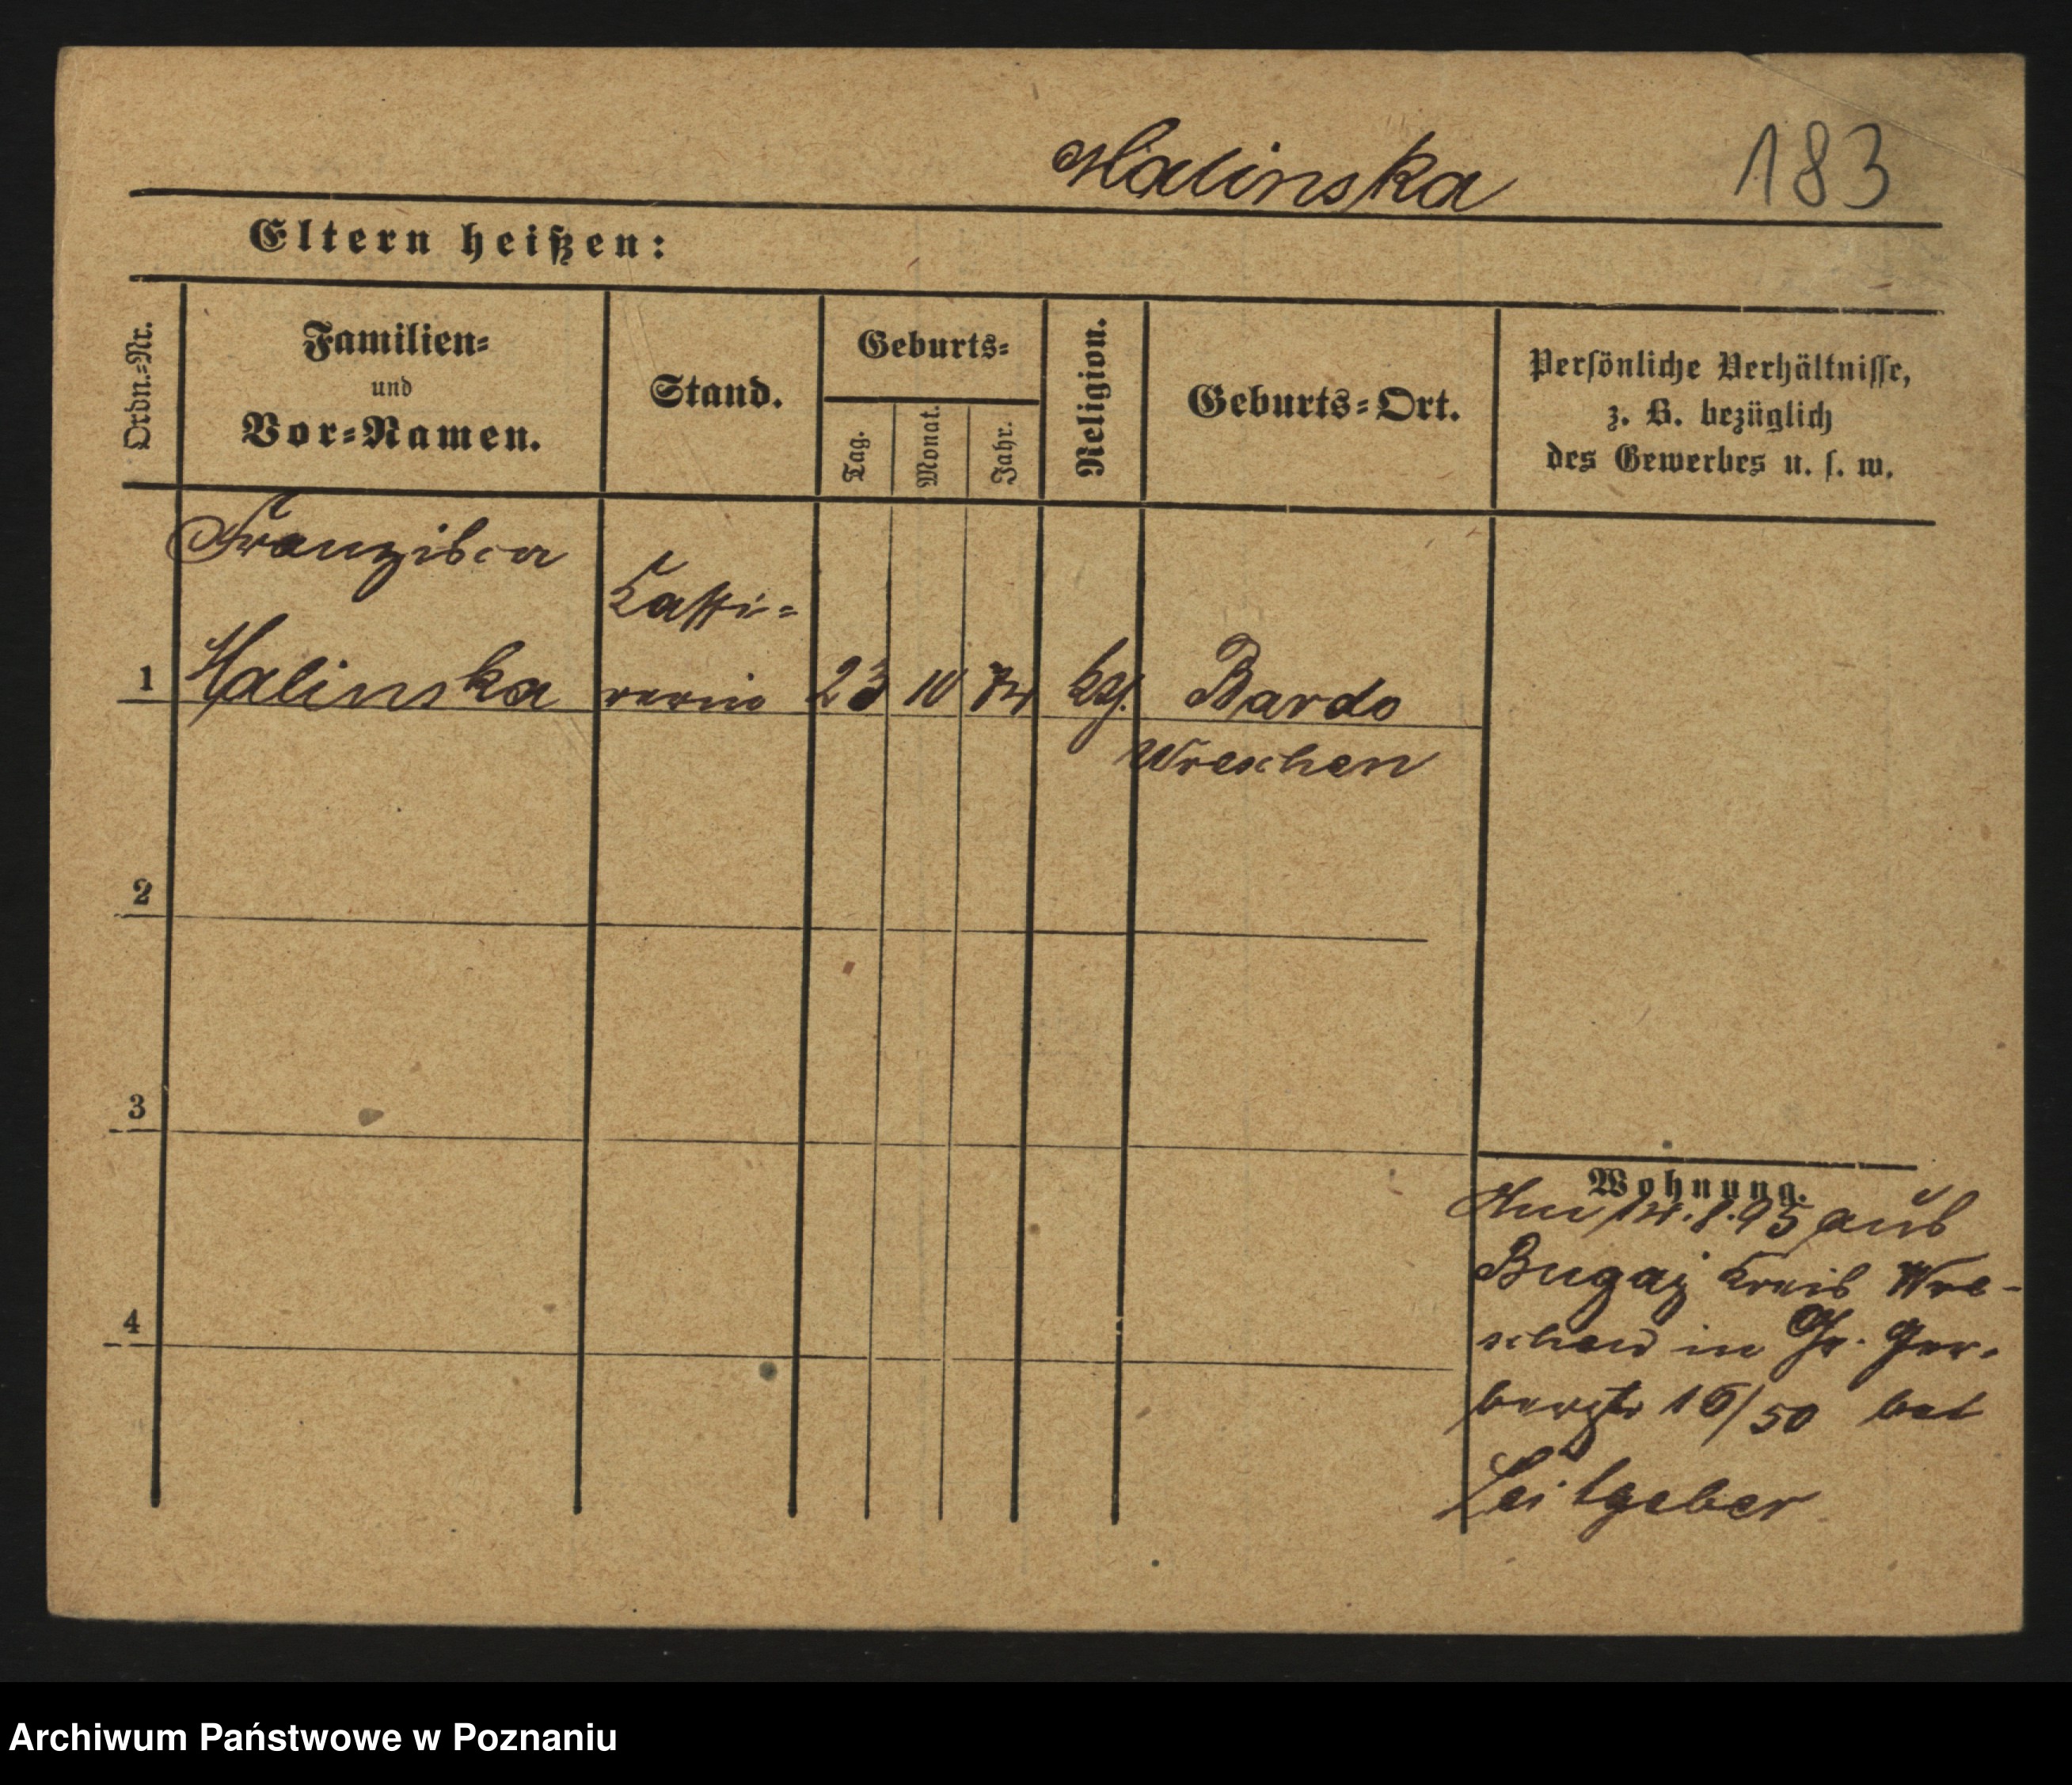 Malinska 183
Eltern heißen:
Ordn.-Nr.
Familien-
und
Vor-Namen.
Stand.
Geburts-
Tag.
Monat.
Jahr.
Religion.
Geburts-Ort.
Persönliche Verhältnisse,
z. B. bezüglich
des Gewerbes u. s. w.
Franzisca
Kassi-
1 Malinska rerin 23 10 74 kg. Bardo
Wreschen
2
3
4
Wohnung.
Am 14.8.95 aus
Bugaj Kreis Wre-
schen in Gr. Ger-
berstr 16/50 bei
Leitgeber
Archiwum Państwowe w Poznaniu